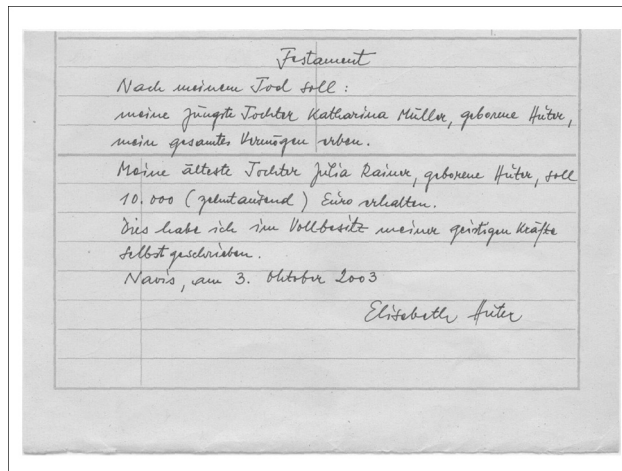 Testament
Nach meinem Tod soll:
meine jüngste Tochter Katharina Müller, geborene Hüter,
mein gesamtes Vermögen erben.
Meine älteste Tochter Julia Rainer, geborene Hüter, soll
10.000 (zehntausend) Euro erhalten.
Dies habe ich im Vollbesitz meiner geistigen Kräfte
selbst geschrieben.
Navis, am 3. Oktober 2003
Elisabeth Hüter